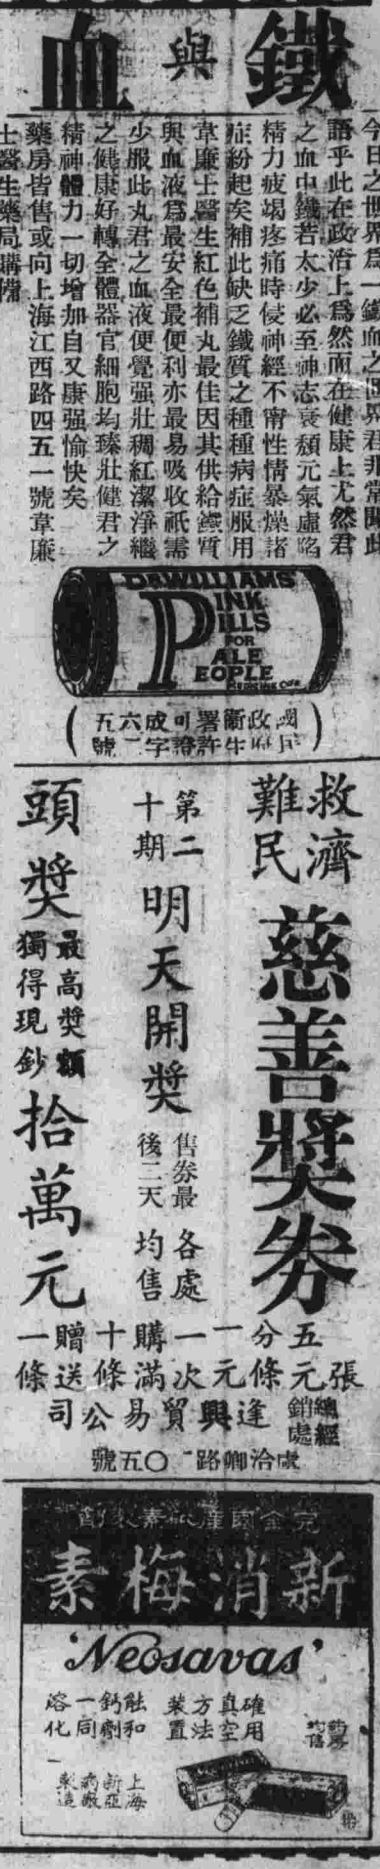 鐵與血
今日之世界爲一鐵血之世界君非常聞此
語乎此在政治上爲然而在健康上尤然君
之血中鐵若太少必至神志衰頹元氣虛陷
精力疲竭疼痛時侵神經不甯性情暴燥諸
症紛起矣補此缺乏鐵質之種種病症服用
韋廉士醫生紅色補丸最佳因其供給鐵質
與血液爲最安全最便利亦最易吸收祇需
少服此丸君之血液便覺强壯稠紅潔淨繼
之健康好轉全體器官細胞均臻壯健君之
精神體力一切增加自又康强愉快矣
藥房皆售或向上海江西路四五一號韋廉
士醫生藥局購備
DR WILLIAMS
PINK
PILLS
FOR
PALE
PEOPLE
國民政府衛生署許可證成字六二五號
救濟難民
慈善獎券
第二十期
明天開獎
售券最後二天
各處均售
頭獎
最高獎額
獨得現鈔
拾萬元
五元一張
分條一元
一次購滿十條
贈送一條
總經銷處
逢興貿易公司
處洽卿路一〇五號
新消梅素
'Neosavas'
確用真空方法裝置
能和鈣劑一同溶化
藥房均售
上海新亞藥廠製造